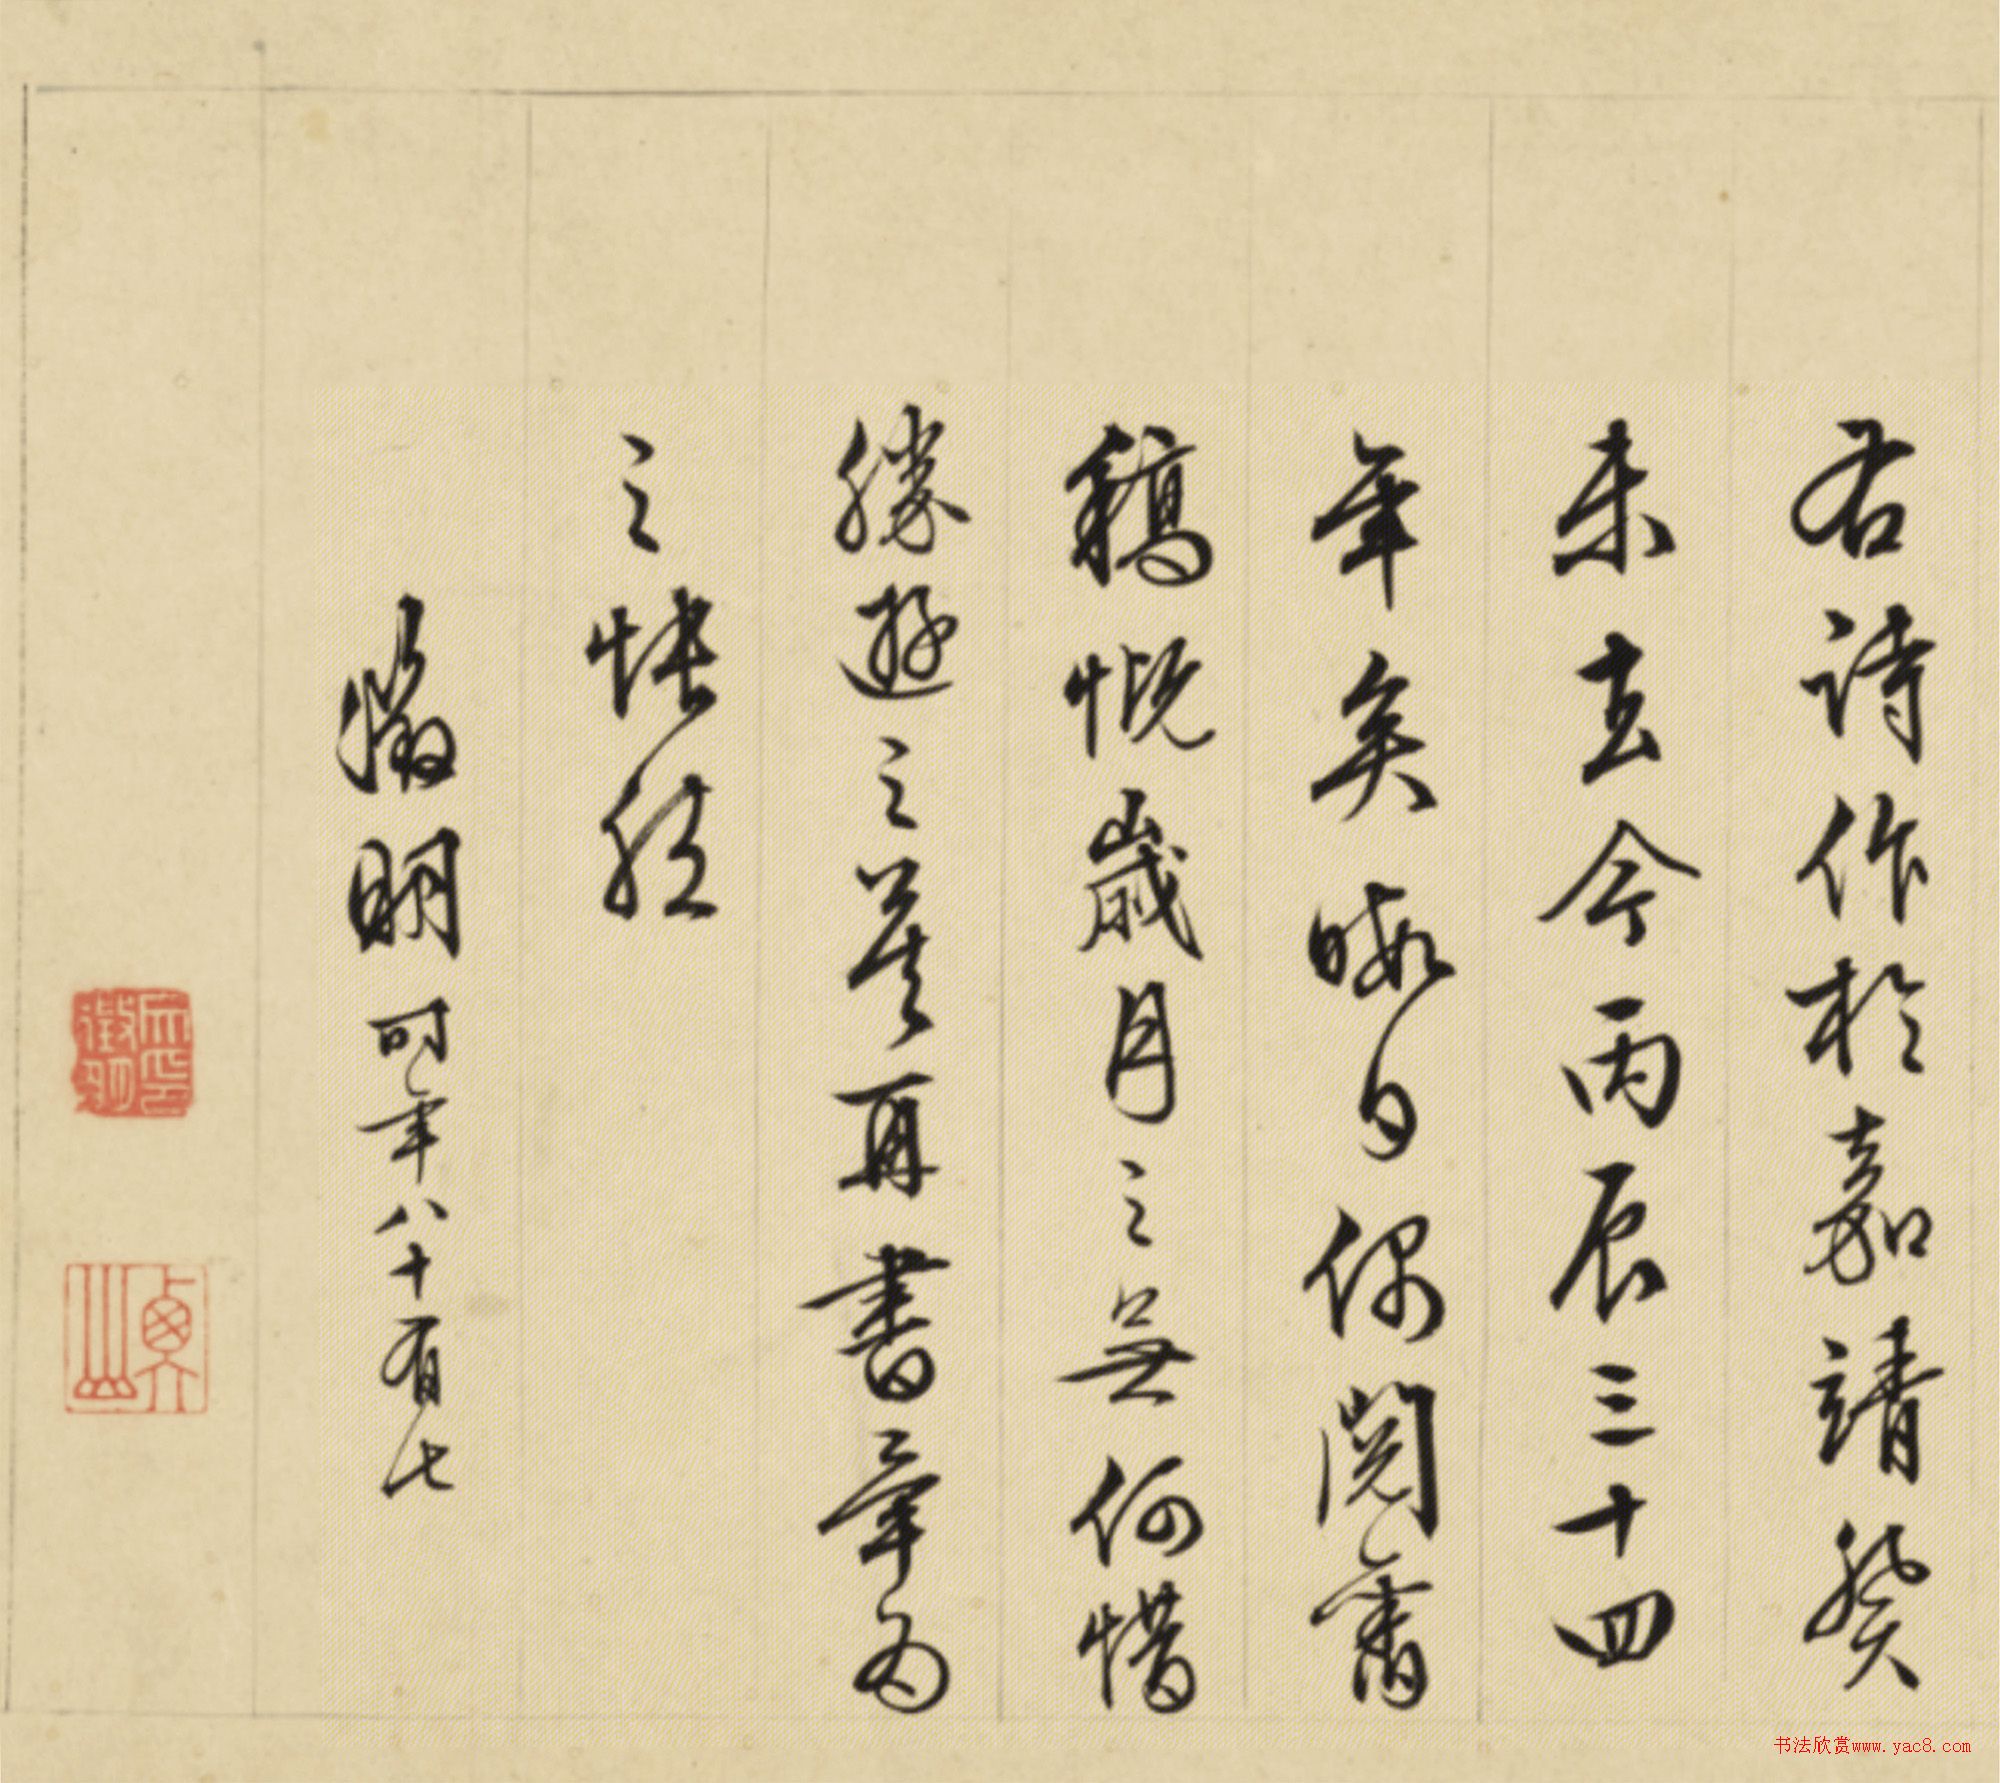 右詩作於嘉靖癸
未去今丙辰三十四
年矣暇日偶閱舊
稿慨歲月之無何惜
勝遊之莫再書為
之悵然
徵明時年八十有七
文徵明印
衡山
书法欣赏www.yac8.com